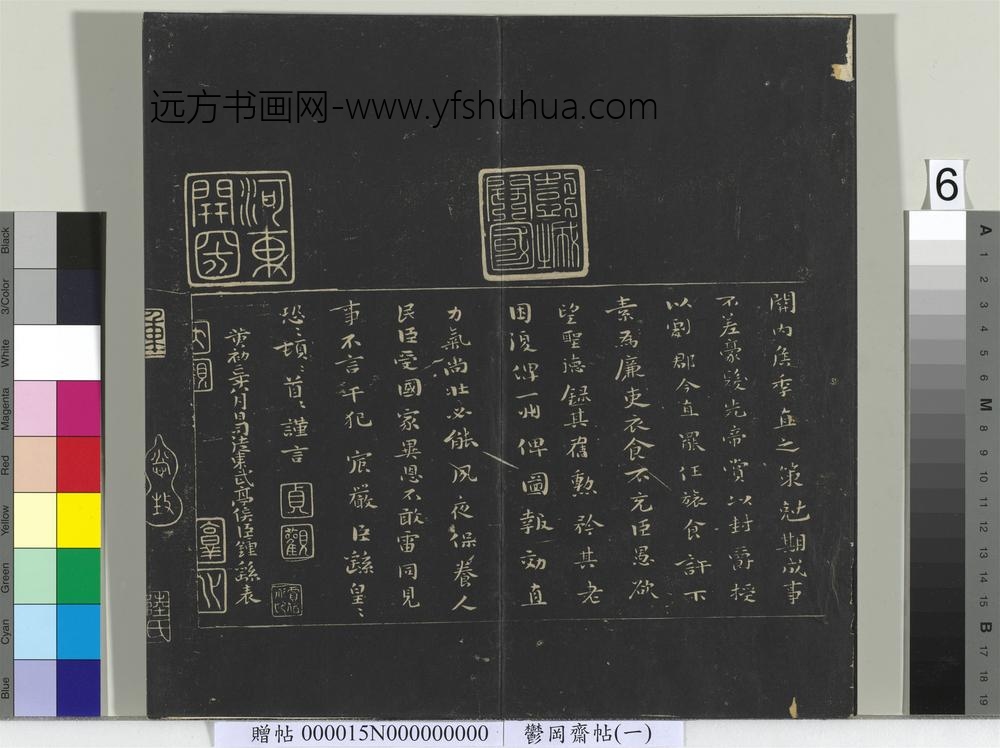 远方书画网-www.yfshuhua.com
6
河東
關內侯季直之策尅期成事
不差豪髮先帝賞以封爵授
以劇郡今直罷任旅食許下
素為廉吏衣食不充臣愚欲
望聖德錄其舊勳矜其老
困復俾一州俾圖報効直
力氣尚壯必能夙夜保養人
民臣受國家異恩不敢雷同見
事不言干犯宸嚴臣繇皇〻
恐〻頓〻首〻謹言
黃初二年八月日司徒東武亭侯臣鍾繇表
貞
觀
陸氏
Black
3/Color
White
Magenta
Red
Yellow
Green
Cyan
Blue
A
1
2
3
4
5
6
M
8
9
10
11
12
13
14
15
B
17
18
19
贈帖 000015N000000000
鬱岡齋帖(一)